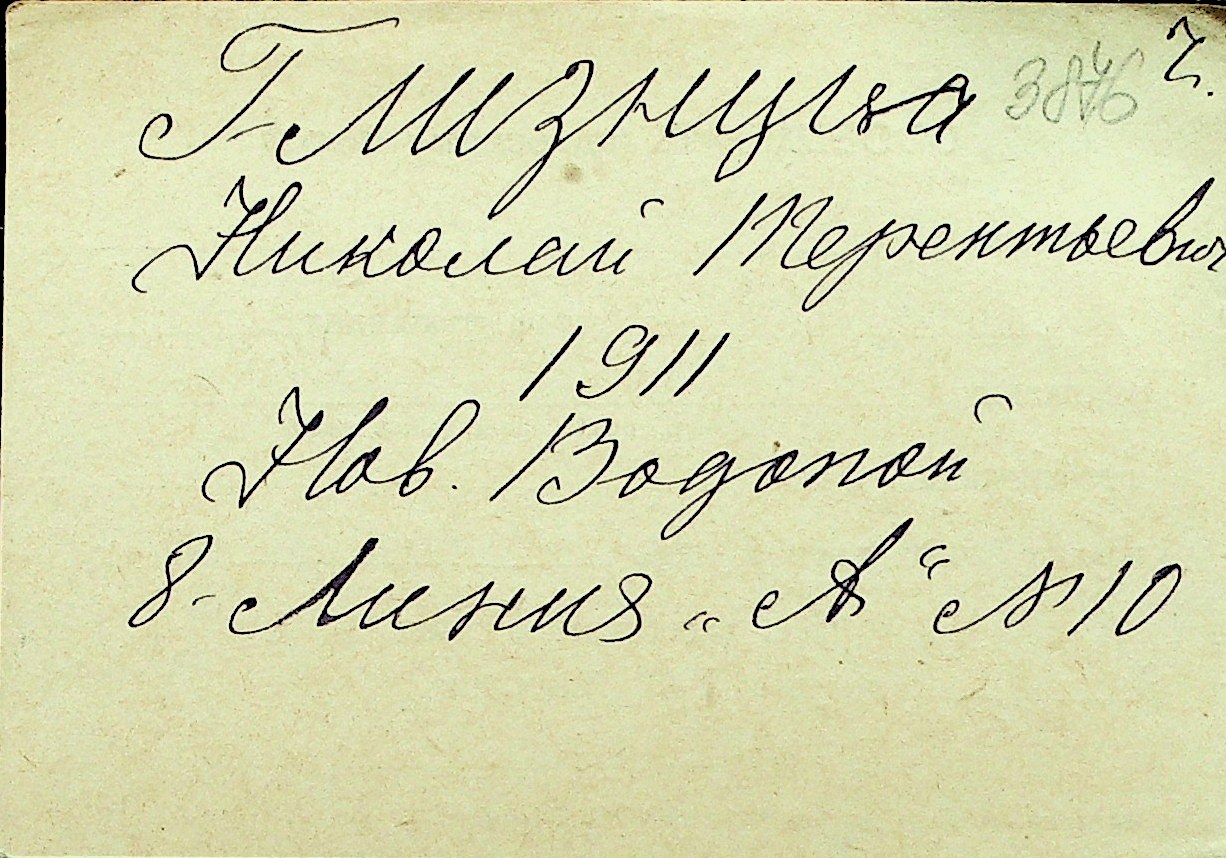 Глизнуца 3876 Ч.
Николай Терентьевич
1911
Нов. Водопой
8-Линия „А“ № 10